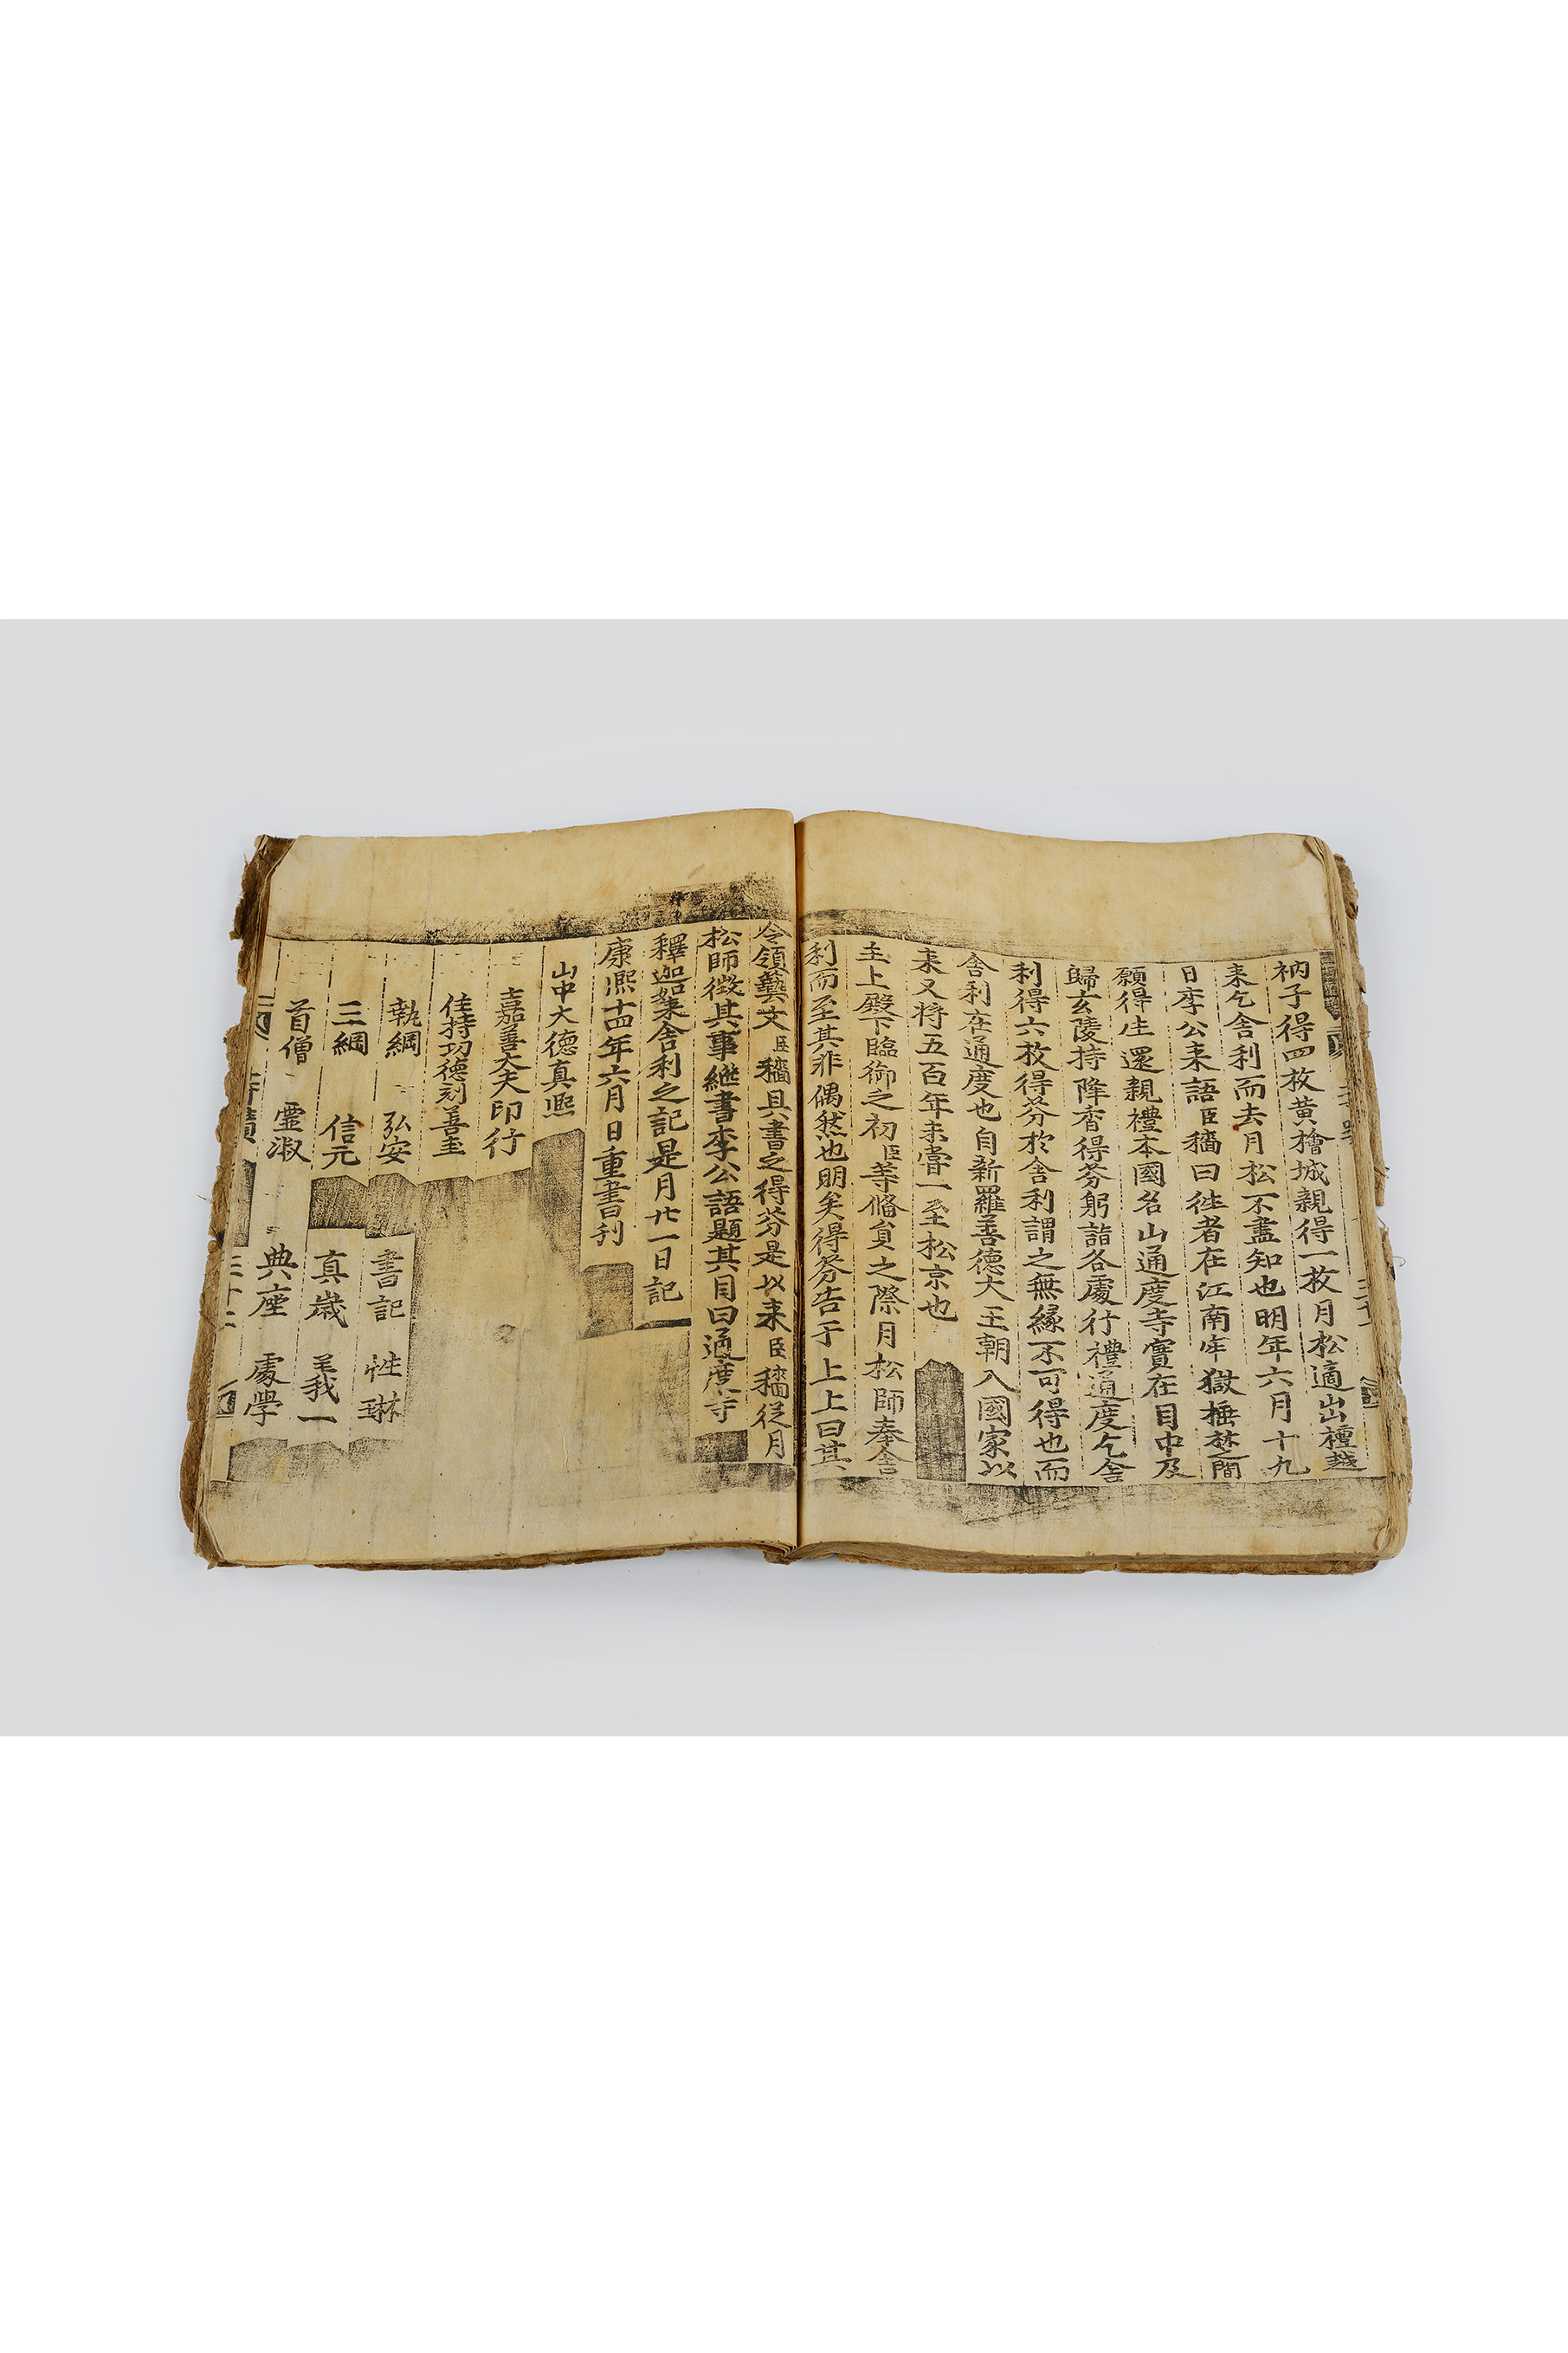 衲子得四枚黄檜城親得一枚月松適出檀越
来乞舍利而去月松不盡知也明年六月十九
日李公来語臣穡曰徃者在江南牢獄捶楚間
願得生還親禮本國名山通度寺實在目中及
歸玄陵持降香得芬躬詣各處行禮通度乞舍
利得六枚得芬於舍利謂之無縁不可得也而
舍利在通度也自新羅善德大王朝入國家以
来又将五百年未甞一至松京也
主上殿下臨御之初臣等俻負之際月松師奉舍
利而至其非偶然也明矣得芬告于上上曰其
令領藝文臣穡具書之得芬是以来臣穡従月
松師徴其事継書李公語題其目曰通度寺
釋迦如来舍利之記是月廿一日記
康熙十四年六月日重書刊
山中大德真熙
嘉善大夫印行
住持功德刻善圭
執綱 弘安
書記 性琳
三綱 信元
真歳 義一
首僧 霊淑
典座 處學